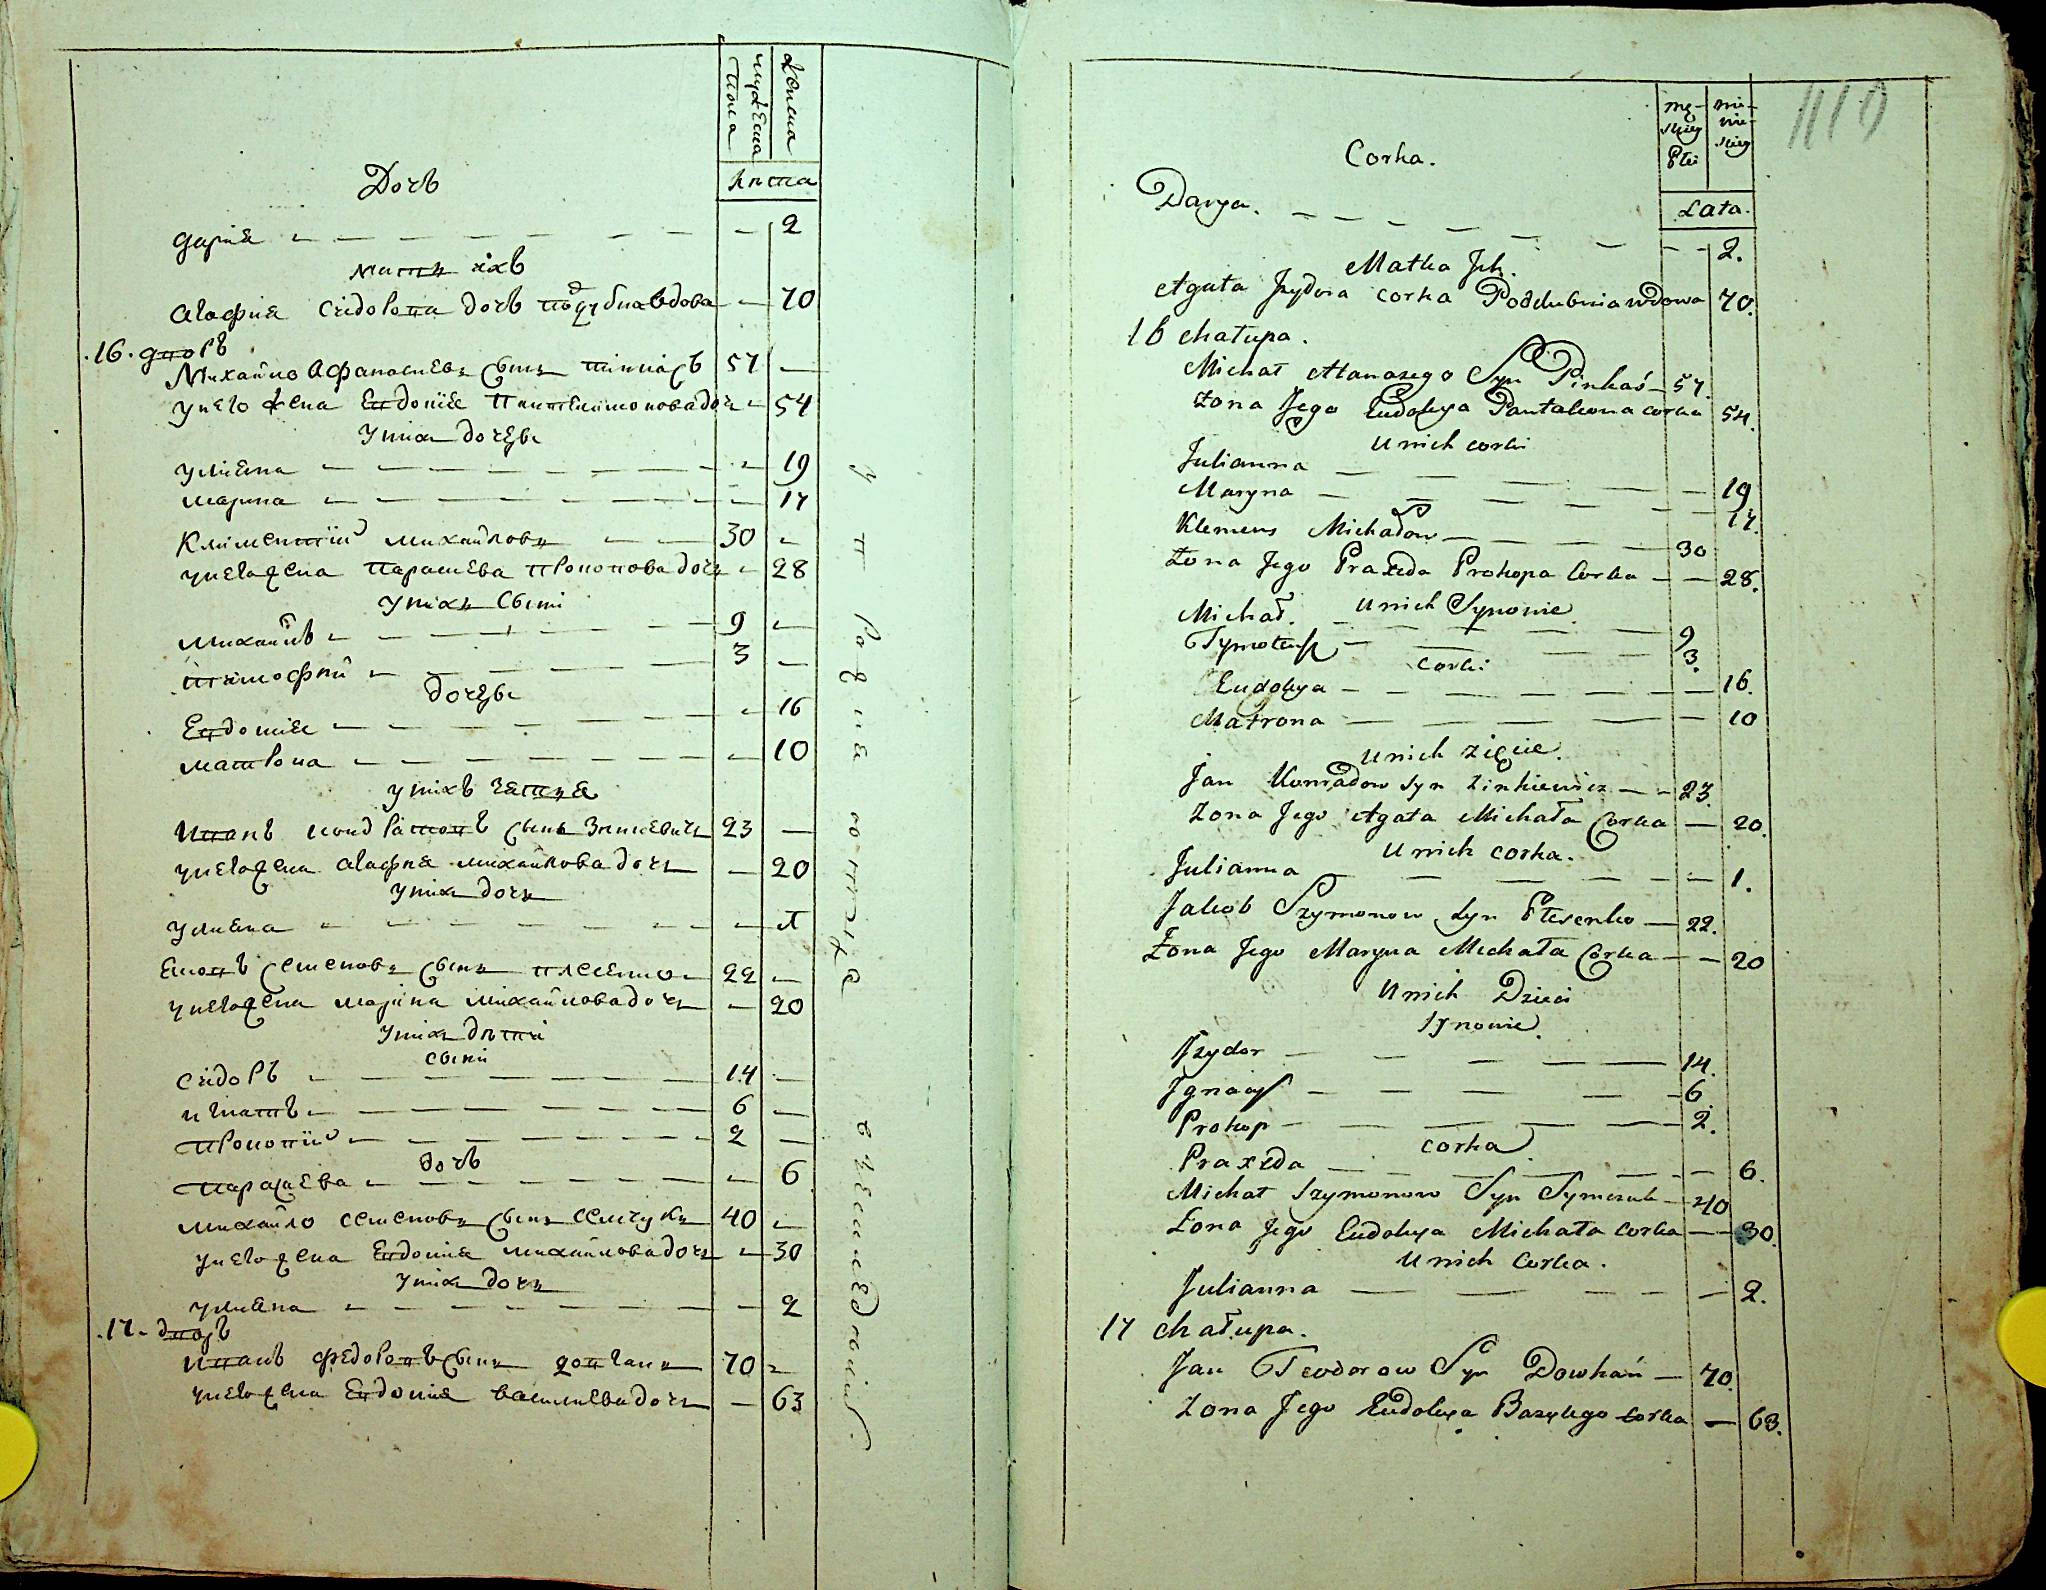 мужеска пола
женска
лѣта
Дочь
Дарія 2
Мати ихъ
Агафія Сидорова дочь Поддубна вдова 70
16. дворъ
Михайло Афанасиевъ сынъ Пинкасъ 57
У него жена Евдокія Пантелимонова дочь 54
У нихъ дочеры
Улияна 19
Марина 17
Климентій Михайловъ 30
У него жена Парасцева Прокопова дочь 28
У нихъ сыни
Михаилъ 9
Тимофій 3
дочеры
Евдокія 16
Матрона 10
У нихъ зятья
Иванъ Кондратовъ сынъ Зинкевичъ 23
У него жена Агафія Михайлова дочь 20
У нихъ дочь
Улияна 1
Яковъ Семеновъ сынъ Плесенко 22
У него жена Марина Михайлова дочь 20
У нихъ дѣти
сыни
Сидоръ 14
Игнатъ 6
Прокопій 2
дочь
Парасцева 6
Михайло Семеновъ сынъ Семчукъ 40
У него жена Евдокія Михайлова дочь 30
У нихъ дочь
Улияна 2
17. дворъ
Иванъ Федоровъ сынъ Довганъ 70
У него жена Евдокія Василиева дочь 63
119
męskiey Płci
niewieskiey
Lata.
Corka.
Darya. 2.
Matka Jch.
Agata Jzydora corka Poddubnia wdowa 70.
16 chałupa.
Michał Atanazego Syn Pinkaś 57.
Żona Jego Eudokya Pantaleona corka 54.
U nich corki
Julianna 19
Maryna 17.
Klemens Michałow 30
Żona Jego Praxeda Prokopa Corka 28.
U nich Synowie.
Michał. 9
Tymoteusz 3.
corki
Eudokya 16.
Matrona 10
U nich zięcie.
Jan Konradow Syn Zinkiewicz 23.
Żona Jego Agata Michała Corka 20.
U nich corka.
Julianna 1.
Jakob Szymonow Syn Plesenko 22.
Żona Jego Maryna Michała Corka 20
U nich Dzieci
Synowie.
Jzydor 14.
Jgnacy 6.
Prokop 2.
corka.
Praxeda 6.
Michał Szymonow Syn Symczuk 40
Żona Jego Eudokya Michała corka 30.
U nich Corka.
Julianna 2.
17 chałupa.
Jan Teodorow Syn Dowhań 70.
Żona Jego Eudokya Bazylego corka 63.